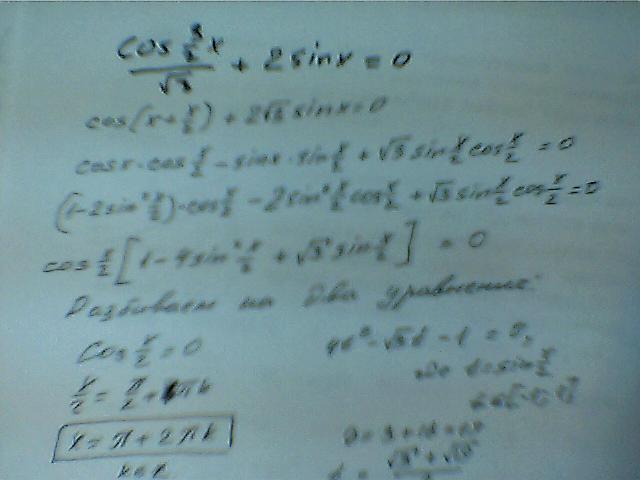 cos 3/2 x / √3 + 2 sin x = 0
cos(x + x/2) + 2√3 sin x = 0
cos x · cos x/2 − sin x · sin x/2 + √3 sin x/2 cos x/2 = 0
(1 − 2 sin² x/2) · cos x/2 − 2 sin² x/2 cos x/2 + √3 sin x/2 cos x/2 = 0
cos x/2 [1 − 4 sin² x/2 + √3 sin x/2] = 0
Разбиваем на два уравнения:
cos x/2 = 0
x/2 = π/2 + πk
x = π + 2πk
k ∈ Z
4t² − √3t − 1 = 0,
t = sin x/2